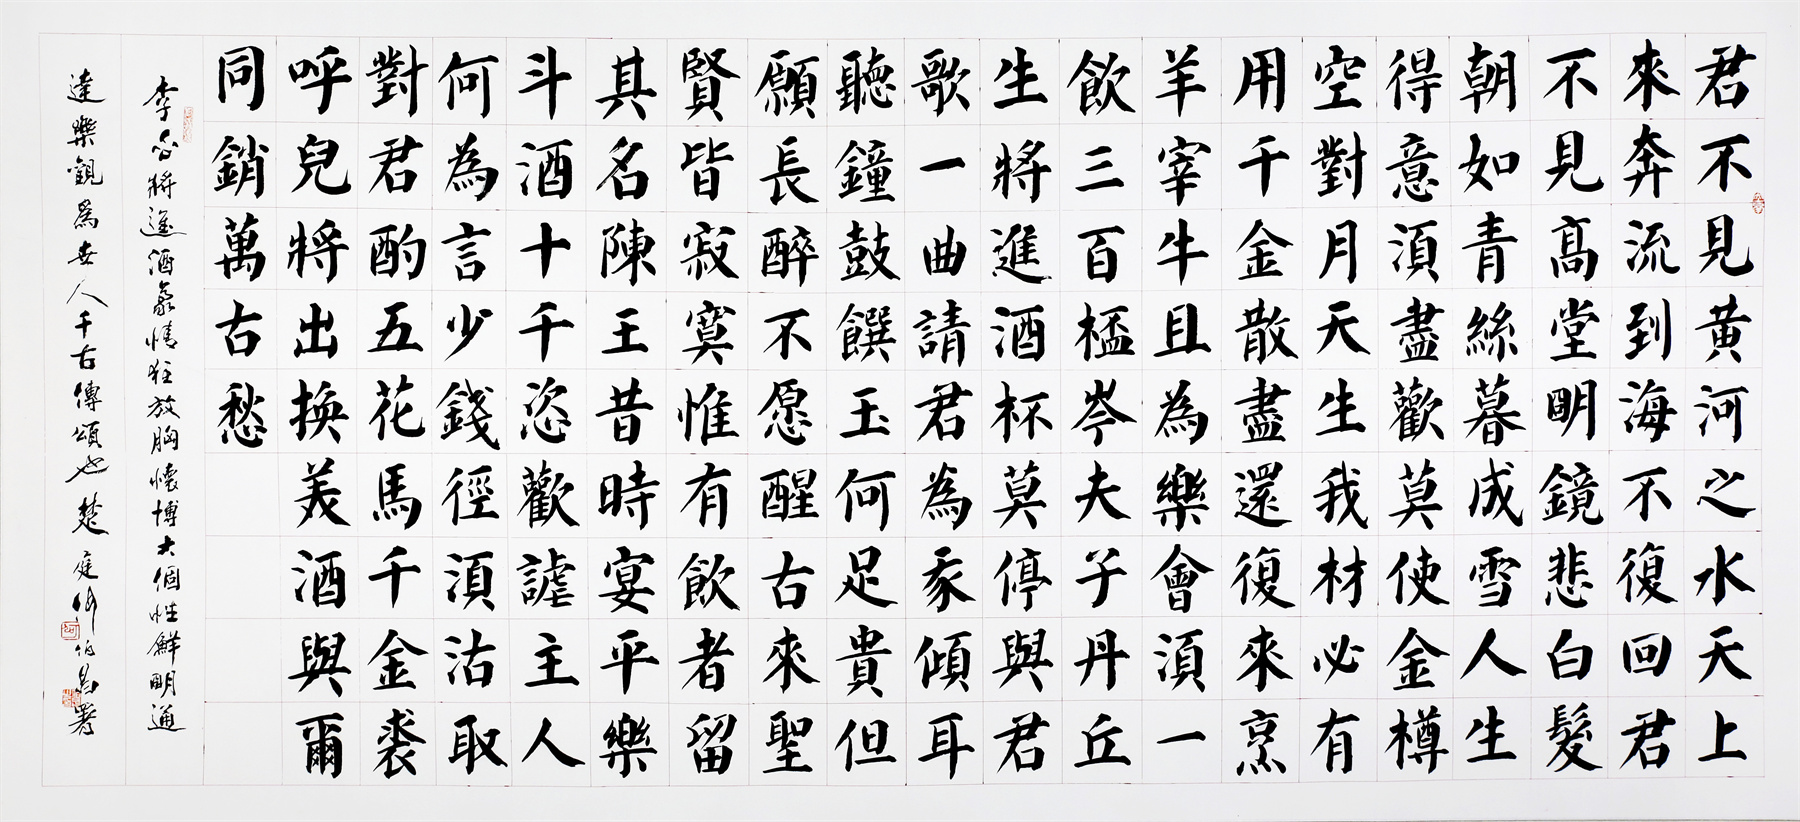 君不見黄河之水天上
來奔流到海不復回君
不見髙堂眀鏡悲白髮
朝如青絲暮成雪人生
得意須盡歡莫使金樽
空對月天生我材必有
用千金散盡還復來烹
羊宰牛且為樂會須一
飲三百岑夫子丹丘
生將進酒杯莫停與君
歌一曲請君為豕傾耳
聽鐘鼓饌玉何足貴但
願長醉不愿醒古來聖
賢皆寂寞惟有飲者留
其名陳王昔時宴平樂
斗酒十千恣歡謔主人
何為言少錢徑須沽取
對君酌五花馬千金裘
呼兒將出換美酒與爾
同銷萬古愁
李白將進酒豪情狂放胸懷博大個性鮮眀通
達樂觀爲世人千古傳頌也楚庭何伯昌署